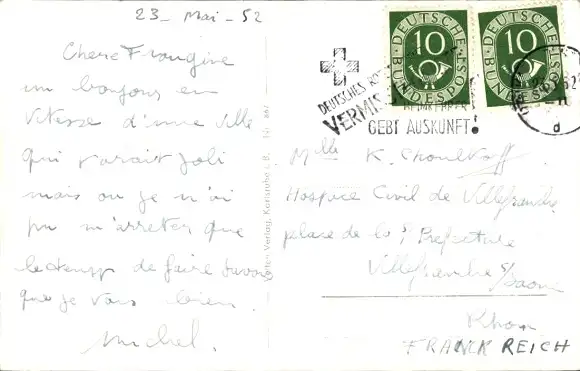 23 - Mai - 52
Chere Frangine
un bonjour en
vitesse d'une ville
qui parait joli
mais ou je n'ai
pu m'arreter que
le temps de faire savoir
que je vais bien.
Michel.
Verlag, Karlsruhe
DEUTSCHE BUNDESPOST
10
DEUTSCHE BUNDESPOST
10
DEUTSCHES
VERMIS
GEBT AUSKUNFT!
d
Mlle K.
Hospice Civil de Villefranche
place de la S/ Prefecture
Villefranche s/
Saone
Rhon
FRANCKREICH